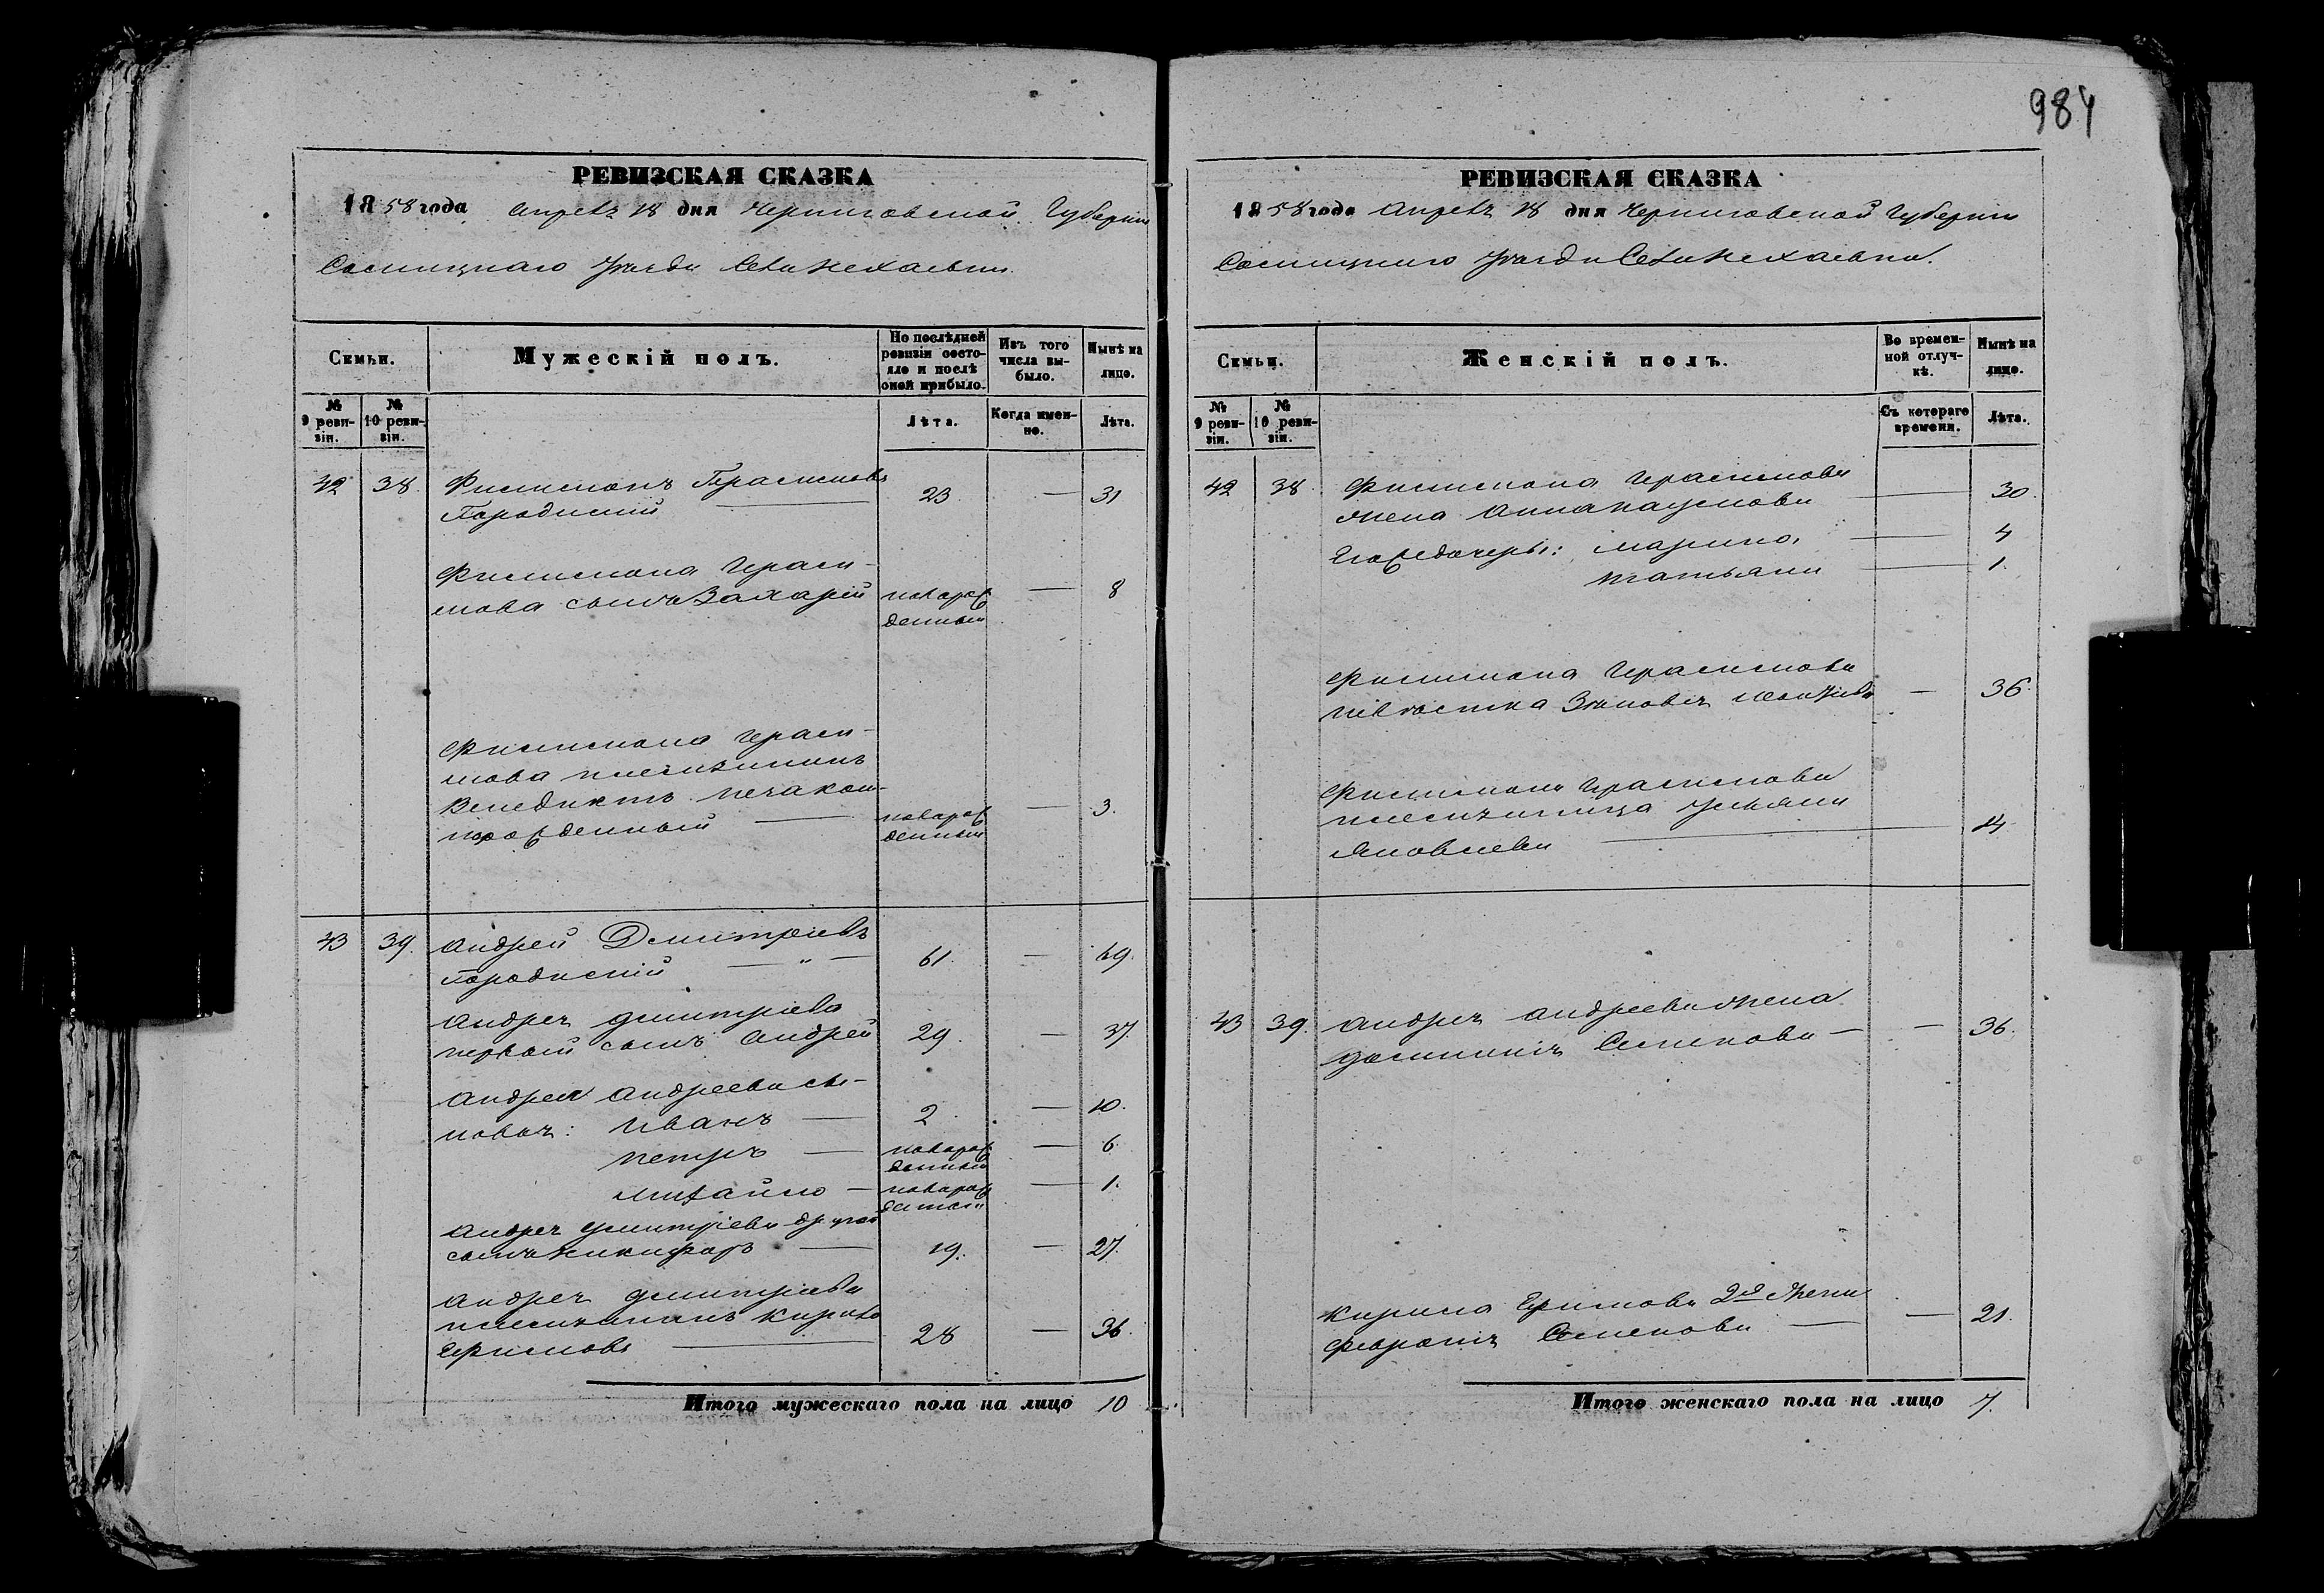 984
РЕВИЗСКАЯ СКАЗКА
1858 года Апреля 18 дня Черниговской Губернии
Сосницкаго Уезда Села Нехаевки.
Семьи.
Мужескій полъ.
По послѣдней ревизіи состояло и послѣ оной прибыло.
Изъ того числа выбыло.
Нынѣ на лицо.
№ 9 ревизіи.
№ 10 ревизіи.
Лѣта.
Когда именно.
Лѣта.
42 38. Филимонъ Герасимовъ
Городискій — 23 — 31
Филимона Гераси-
мова сынъ Захарій новорож
денный — 8
Филимона Гераси-
мова племянникъ
Венедиктъ незакон-
норожденный — новорож
денный — 3.
43 39. Андрей Дмитріевъ
Городискій — „ — 61. — 69.
Андрея Дмитріева
первый сынъ Андрей 29. — 37.
Андрея Андреева сы-
новья: Иванъ — 2. — 10.
Петръ — новорож
денный — 6.
Михайло — новорож
денный — 1.
Андрея Дмитріева другой
сынъ Никифоръ — 19. — 27.
Андрея Дмитріева
племянникъ Кирило
Ефимовъ — 28 — 36.
Итого мужескаго пола на лицо 10
РЕВИЗСКАЯ СКАЗКА
1858 года Апреля 18 дня Черниговской Губернии
Сосницкаго Уезда Села Нехаевки.
Семьи.
Женскій полъ.
Во временной отлучкѣ.
Нынѣ на лицо.
№ 9 ревизіи.
№ 10 ревизіи.
Съ котораго времени.
Лѣта.
42 38. Филимона Герасимова
жена Анна Наумова — 30.
Его ж дочеры: Марина — 4
Татьяна — 1.
Филимона Герасимова
невѣстка Зѣновія — 36.
Филимона Герасимова
племянница Ульяна
Яковлева — 14
43 39. Андрея Андреева жена
Домникія Семенова — — 36.
Кирила Ефимова 2я жена
Феврония Семенова — — 21.
Итого женскаго пола на лицо 7.